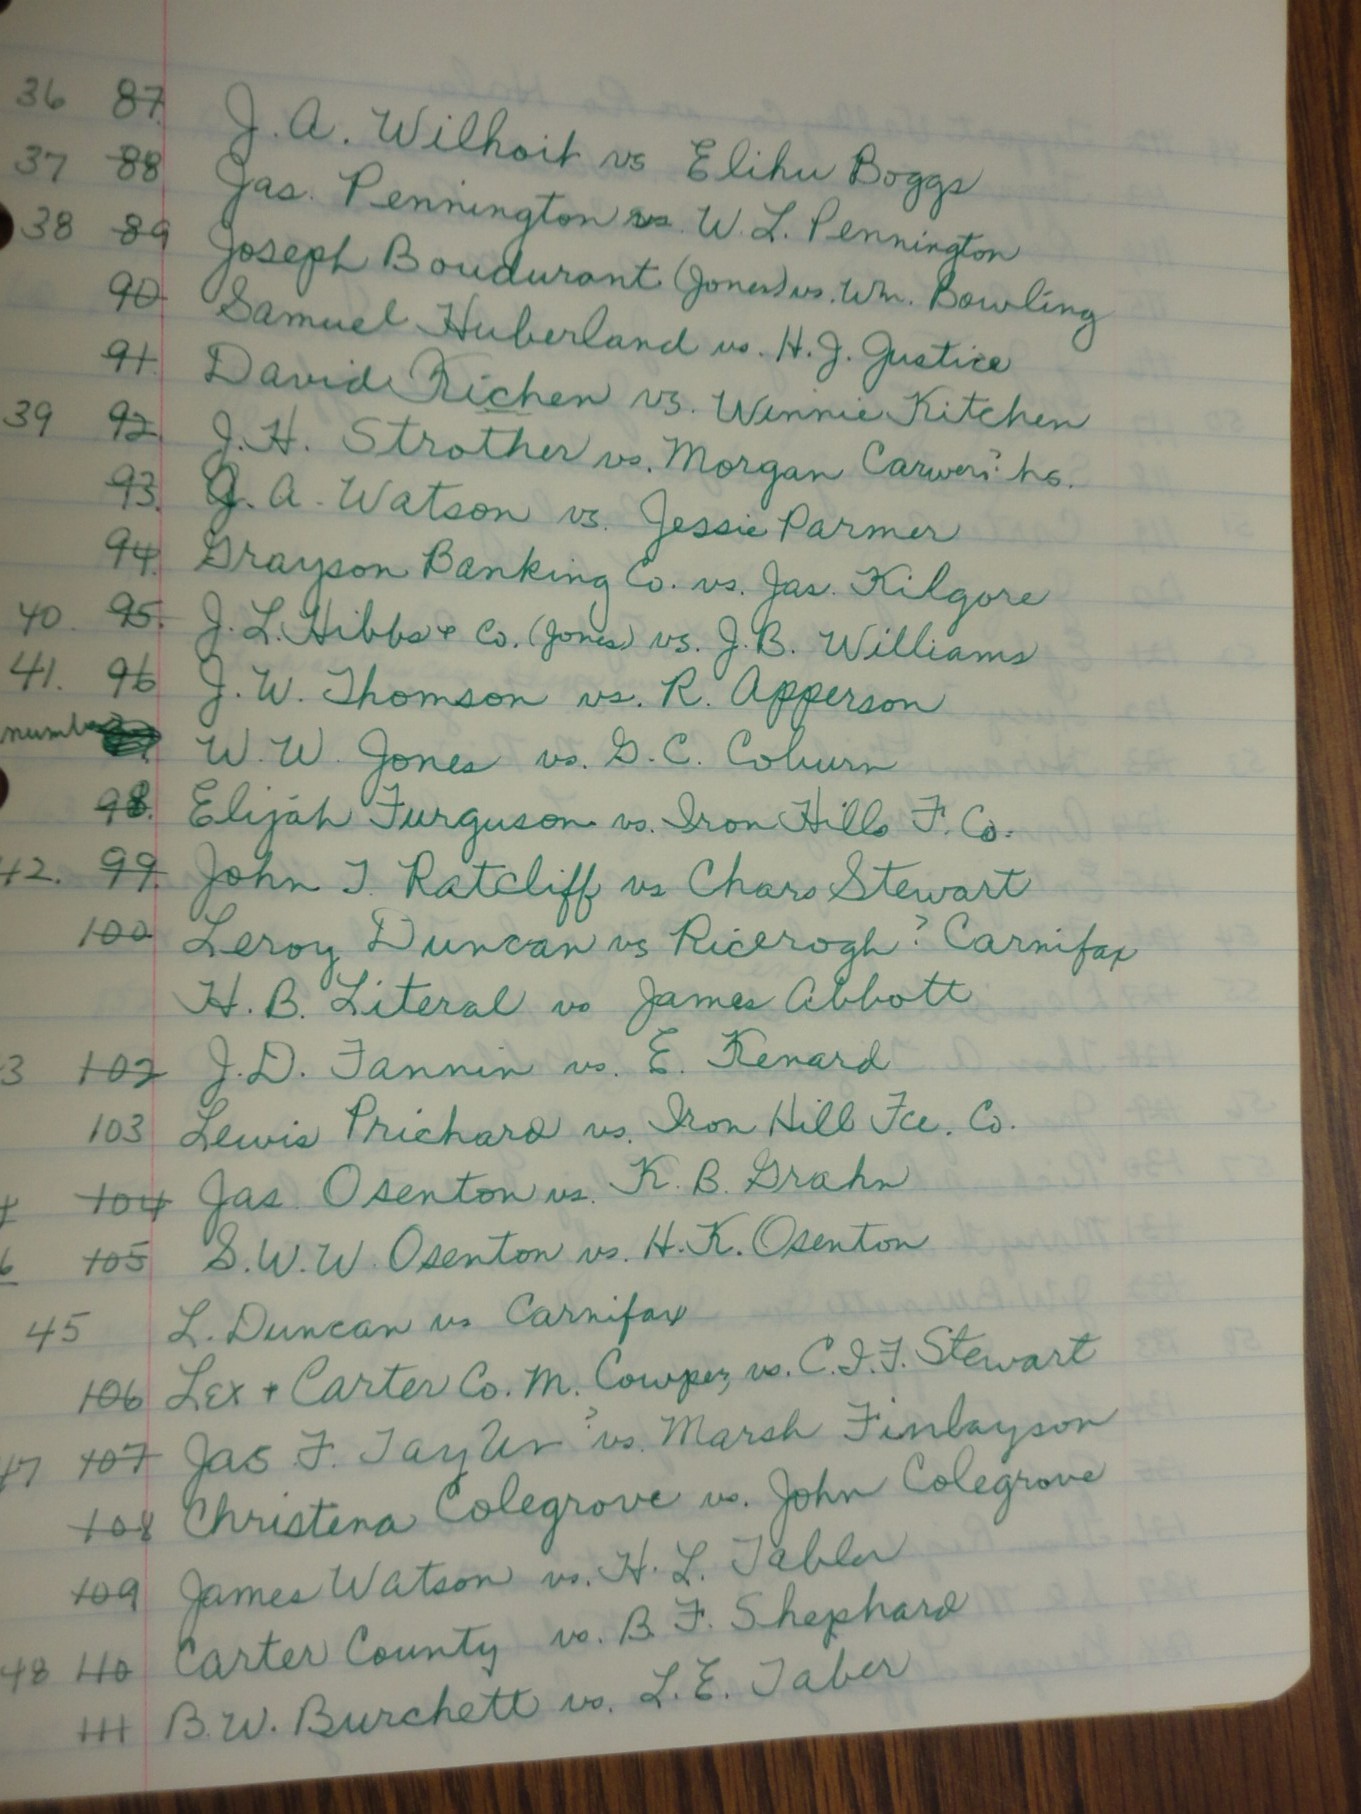 36 87. J. A. Wilhoit vs Elihu Boggs
37 88 Jas. Pennington vs. W. L. Pennington
38 89 Joseph Boudurant (Jones) vs. Wm. Bowling
90 Samuel Huberland vs. H. J. Justice
91. David Richen vs. Winnie Kitchen
39 92. J. H. Strother vs. Morgan Carweri?
93. J. A. Watson vs. Jessie Parmer
94. Grayson Banking Co. vs. Jas. Kilgore
40. 95. J. L. Hibbs + Co. (Jones) vs. J. B. Williams
41. 96 J. W. Thomson vs. R. Apperson
W. W. Jones vs. G. C. Coburn
98. Elijah Furguson vs. Iron Hills F. Co.
42. 99. John T. Ratcliff vs Chars Stewart
100 Leroy Duncan vs Ricerogh? Carnifax
H. B. Literal vs James Abbott
3 102 J. D. Fannin vs. E. Kenard
103 Lewis Prichard vs. Iron Hill Fce. Co.
104 Jas Osenton vs. K. B. Grahn
6 105 S. W. W. Osenton vs. H. K. Osenton
45 L. Duncan vs Carnifax
106 Lex + Carter Co. M. Cowpez vs. C. I. F. Stewart
47 107 Jas F. Tayler? vs. Marsh Finlayson
108 Christena Colegrove vs. John Colegrove
109 James Watson vs. H. L. Tabler
48 110 Carter County vs. B. F. Shephard
111 B. W. Burchett vs. L. E. Taber